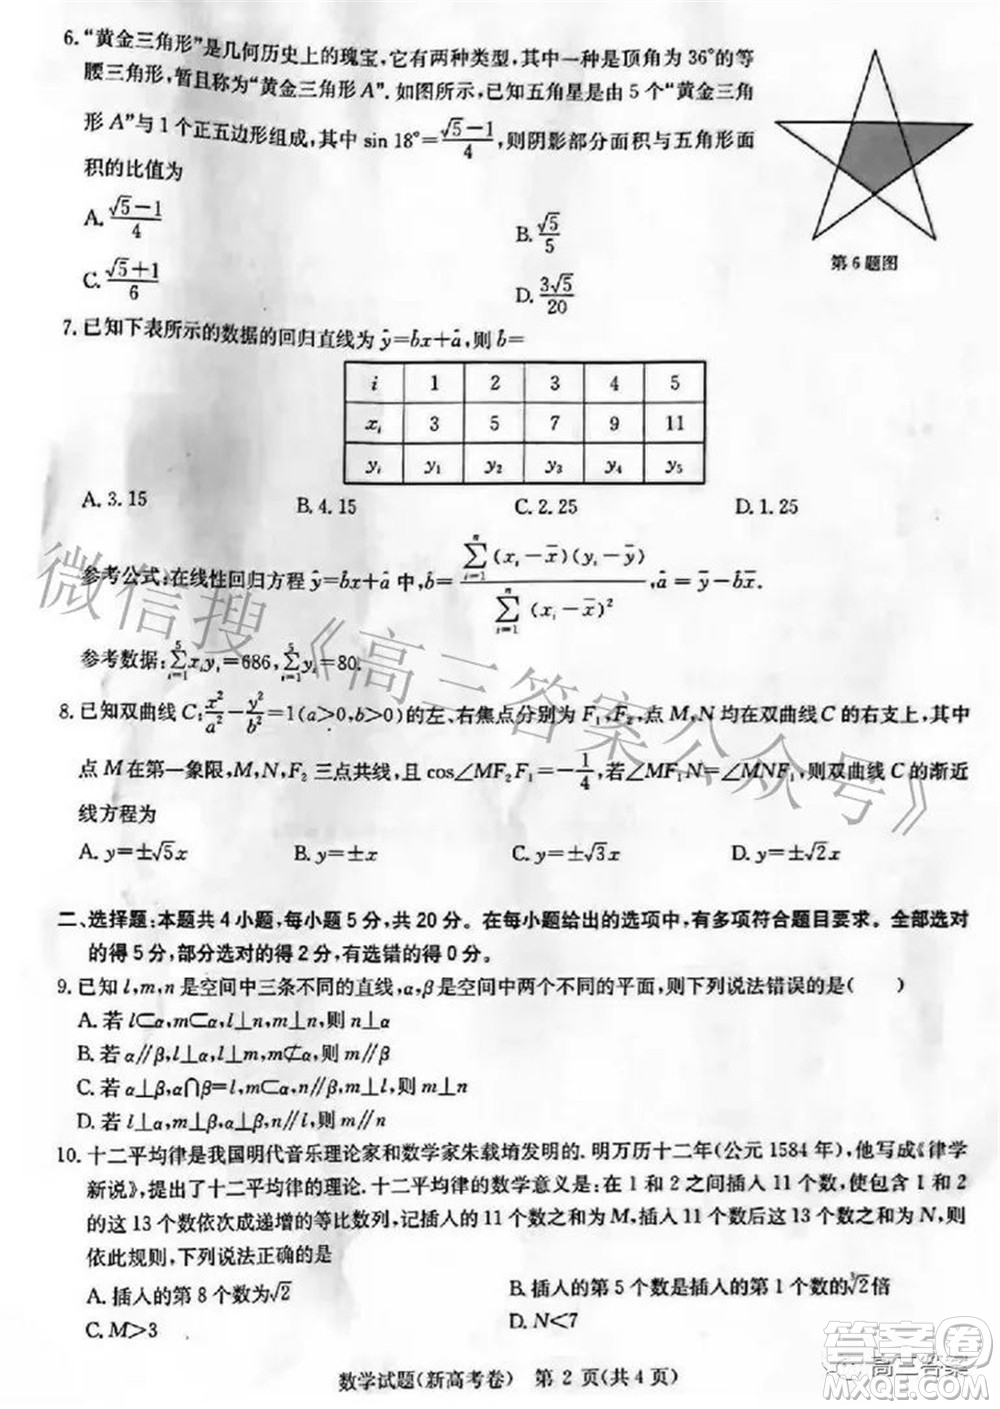 6. “黄金三角形”是几何历史上的瑰宝,它有两种类型,其中一种是顶角为36°的等
腰三角形,暂且称为“黄金三角形A”. 如图所示,已知五角星是由5个“黄金三角
形A”与1个正五边形组成,其中 sin 18°=(√5-1)/4,则阴影部分面积与五角形面
积的比值为
A. (√5-1)/4
B. √5/5
C. (√5+1)/6
D. 3√5/20
第6题图
7. 已知下表所示的数据的回归直线为 ŷ=b̂x+â,则 b̂=
i 1 2 3 4 5
xᵢ 3 5 7 9 11
yᵢ y₁ y₂ y₃ y₄ y₅
A. 3.15 B. 4.15 C. 2.25 D. 1.25
参考公式:在线性回归方程 ŷ=b̂x+â 中,b̂=∑ⁿᵢ₌₁(xᵢ-x̄)(yᵢ-ȳ)/∑ⁿᵢ₌₁(xᵢ-x̄)²,â=ȳ-b̂x̄.
参考数据:∑⁵ᵢ₌₁xᵢyᵢ=686,∑⁵ᵢ₌₁yᵢ=80.
8. 已知双曲线C:x²/a²-y²/b²=1(a>0,b>0)的左、右焦点分别为F₁,F₂,点M,N均在双曲线C的右支上,其中
点M在第一象限,M,N,F₂三点共线,且 cos∠MF₂F₁=-1/4,若∠MF₁N=∠MNF₁,则双曲线C的渐近
线方程为
A. y=±√5x B. y=±x C. y=±√3x D. y=±√2x
二、选择题:本题共4小题,每小题5分,共20分。在每小题给出的选项中,有多项符合题目要求。全部选对
的得5分,部分选对的得2分,有选错的得0分。
9. 已知l,m,n是空间中三条不同的直线,α,β是空间中两个不同的平面,则下列说法错误的是( )
A. 若 l⊂α,m⊂α,l⊥n,m⊥n,则 n⊥α
B. 若 α∥β,l⊥α,l⊥m,m⊄α,则 m∥α
C. 若 α⊥β,α∩β=l,m⊂α,n∥β,m⊥l,则 m⊥n
D. 若 l⊥α,m⊥β,α⊥β,n∥l,则 m∥n
10. 十二平均律是我国明代音乐理论家和数学家朱载堉发明的. 明万历十二年(公元1584年),他写成《律学
新说》,提出了十二平均律的理论. 十二平均律的数学意义是:在1和2之间插入11个数,使包含1和2
的这13个数依次成递增的等比数列,记插入的11个数之和为M,插入11个数后这13个数之和为N,则
依此规则,下列说法正确的是
A. 插入的第8个数为√2 B. 插入的第5个数是插入的第1个数的∛2倍
C. M>3 D. N<7
数学试题(新高考卷) 第2页(共4页)
微信搜《高三答案公众号》
高三答案
答案圈
MXQE.COM